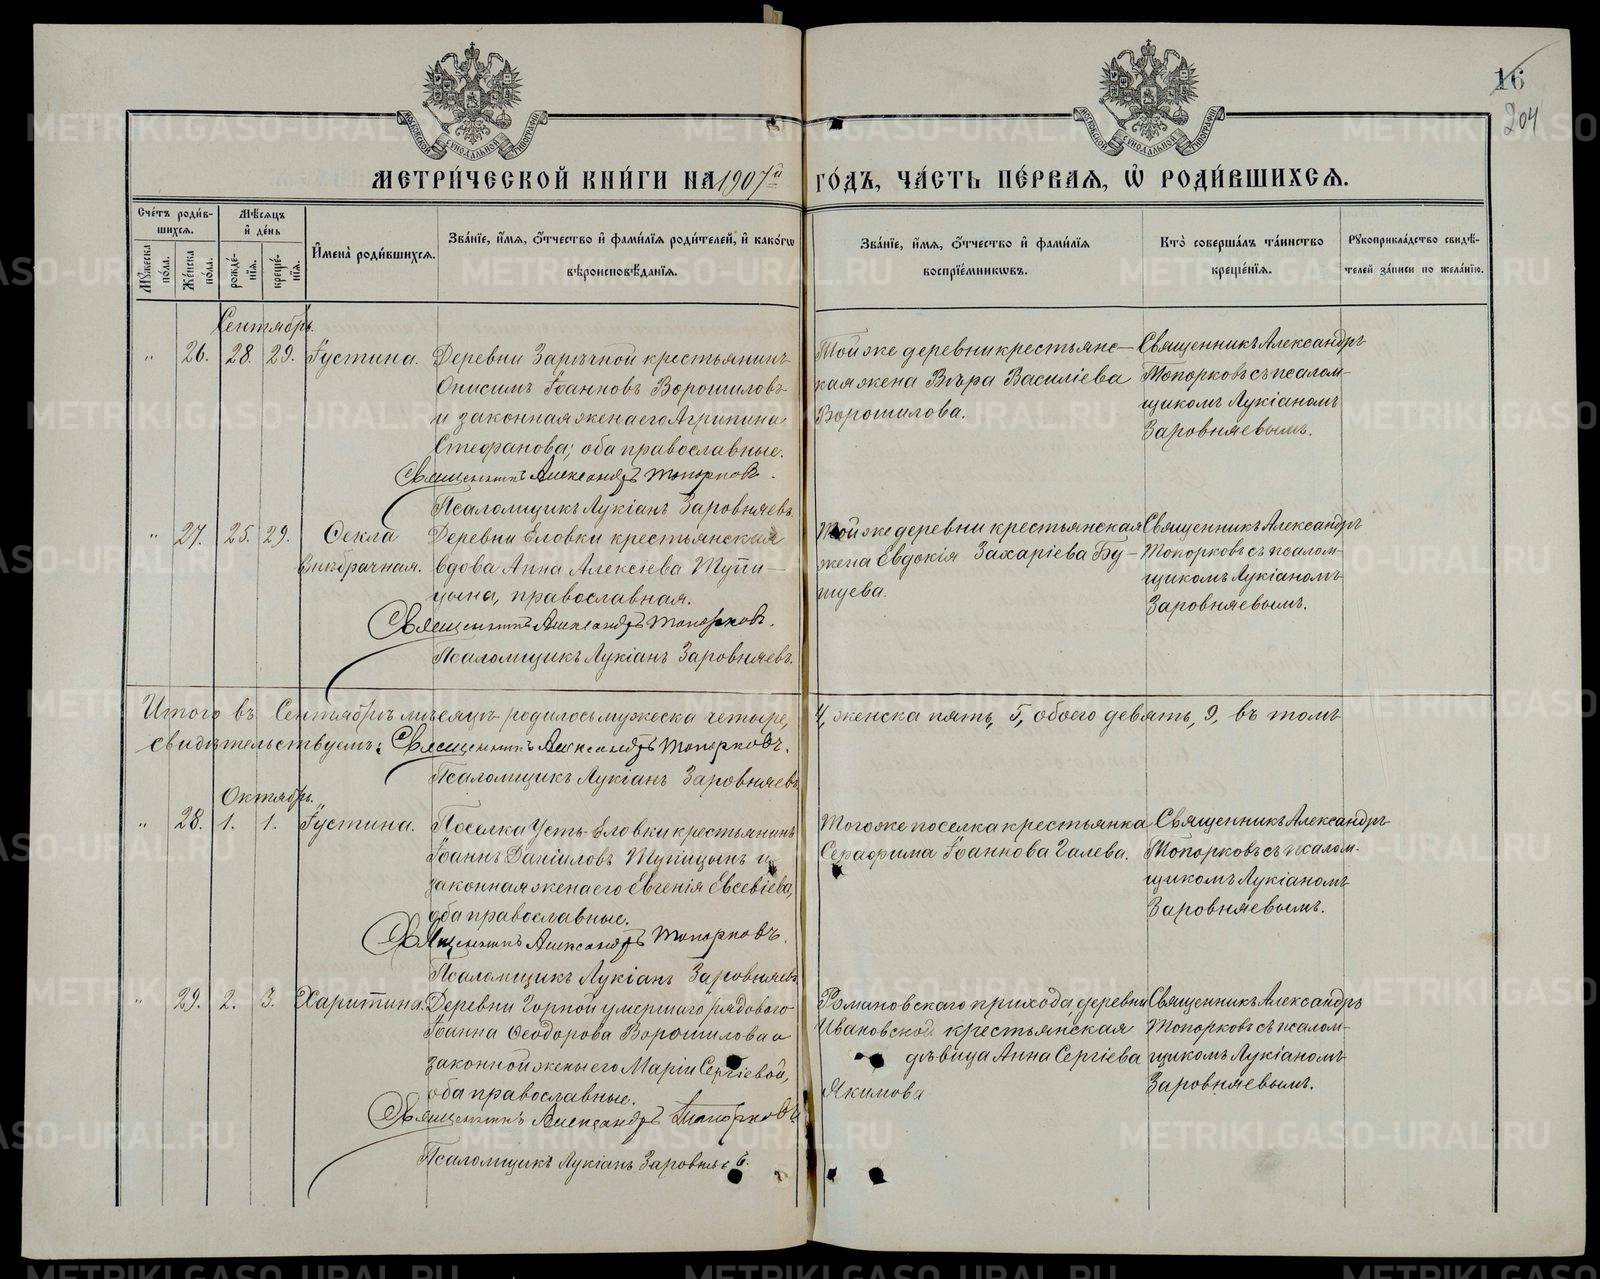 16
204
МЕТРИ́ЧЕСКОЙ КНИ́ГИ НА 1907й ГО́ДЪ, ЧА́СТЬ ПЕ́РВАЯ, Ѡ РОДИ́ВШИХСЯ.
Сче́тъ роди́вшихся.
Мѣ́сяцъ и́ де́нь
И҆мена̀ роди́вшихся.
Зва́нїе, и҆́мя, ѻ҆́тчество и҆ фами́лїя роди́телей, и҆ како́гѡ вѣроисповѣ́данїя.
Зва́нїе, и҆́мя, ѻ҆́тчество и҆ фами́лїя воспрїе́мникѡвъ.
Кто̀ соверша́лъ та́инство креще́нїя.
Рꙋкоприкла́дство свидѣ́телей за́писи по жела́нїю.
Мꙋ́жеска по́ла.
Же́нска по́ла.
рожде́нїя.
креще́нїя.
Сентябрь.
" 26. 28. 29. Іустина.
Деревни Зарѣчной крестьянинъ
Онисимъ Іоанновъ Ворошиловъ
и законная жена его Агрипина
Стефанова; оба православные.
Священникъ Александръ Топорковъ.
Псаломщикъ Лукіанъ Заровняевъ.
Той же деревни крестьянс-
кая жена Вѣра Василіева
Ворошилова.
Священникъ Александръ
Топорковъ съ псалом-
щикомъ Лукіаномъ
Заровняевымъ.
" 27. 25. 29. Ѳекла
Внѣбрачная.
Деревни Еловки крестьянская
вдова Анна Алексіева Тупи-
цына, православная.
Священникъ Александръ Топорковъ.
Псаломщикъ Лукіанъ Заровняевъ.
Той же деревни крестьянская
жена Евдокія Захаріева Бу-
туева.
Священникъ Александръ
Топорковъ съ псалом-
щикомъ Лукіаномъ
Заровняевымъ.
Итого въ Сентябрѣ мѣсяцѣ родилось мужеска четыре, 4, женска пять, 5, обоего девять, 9, въ томъ
свидѣтельствуемъ: Священникъ Александръ Топорковъ.
Псаломщикъ Лукіанъ Заровняевъ
Октябрь.
" 28. 1. 1. Іустина.
Поселка Усть-Еловки крестьянинъ
Іоаннъ Даніиловъ Тупицынъ и
законная жена его Евгенія Евсевіева,
оба православные.
Священникъ Александръ Топорковъ.
Псаломщикъ Лукіанъ Заровняевъ
Того же поселка крестьянка
Серафима Іоаннова Галева.
Священникъ Александръ
Топорковъ съ псалом-
щикомъ Лукіаномъ
Заровняевымъ.
" 29. 2. 3. Харитина.
Деревни Горной умершаго рядового
Іоанна Ѳеодорова Ворошилова и
законной жены его Маріи Сергіевой,
оба православные.
Священникъ Александръ Топорковъ
Псаломщикъ Лукіанъ Заровняевъ.
Романовскаго прихода, деревни
Ивановской крестьянская
дѣвица Анна Сергіева
Якимова
Священникъ Александръ
Топорковъ съ псалом-
щикомъ Лукіаномъ
Заровняевымъ.